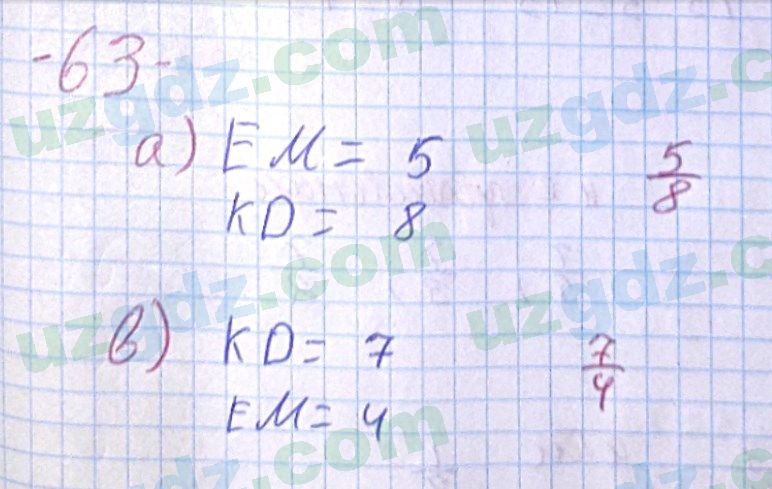 -63-
а) EM = 5 5/8
KD = 8
в) KD = 7 7/4
EM = 4
uzgdz.com
uzgdz.com
uzgdz.com
uzgdz.com
uzgdz.com
uzgdz.com